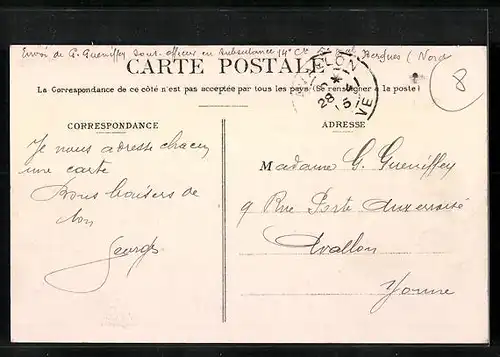 Envoi de G. Gueniffey sous-officier en subsistance 14e Cie Bergues (Nord
CARTE POSTALE
La Correspondance de ce côté n'est pas acceptée par tous les pays (Se renseigner à la poste)
28
8
CORRESPONDANCE
Je vous adresse chacun
une carte
Bons baisers de
ton
Georges
ADRESSE
Madame G. Gueniffey
9 Rue Porte Auxerroise
Avallon
Yonne